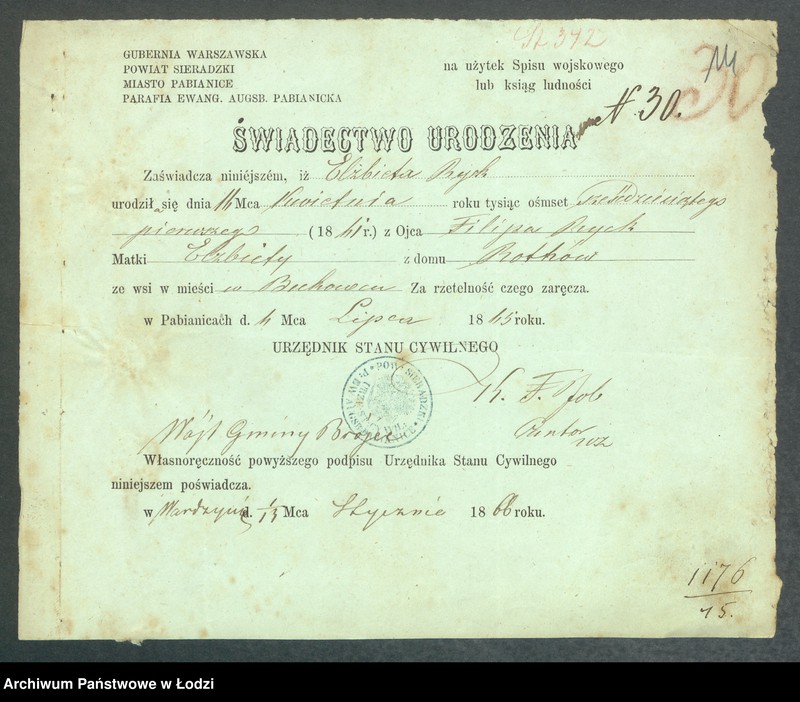 St 372
GUBERNIA WARSZAWSKA
POWIAT SIERADZKI
MIASTO PABIANICE
PARAFIA EWANG. AUGSB. PABIANICKA
na użytek Spisu wojskowego
lub ksiąg ludności
30
N. 30.
ŚWIADECTWO URODZENIA
Zaświadcza niniéjszém, iż Elżbieta Ryck
urodził się dnia Mca Kwietnia roku tysiąc ośmset Sześdziesiątego
pierwszego (18 61 r.) z Ojca Filipa Ryck
Matki Elżbiety z domu Rothów
ze wsi w mieści w Za rzetelność czego zaręcza.
w Pabianicach d. Mca Lipca 18 65 roku.
URZĘDNIK STANU CYWILNEGO
Kantor
Wójt Gminy Brojce
Własnoręczność powyższego podpisu Urzędnika Stanu Cywilnego
niniejszem poświadcza.
w Wardzyniu d. 1/13 Mca Stycznia 18 66 roku.
1176
15.
Archiwum Państwowe w Łodzi